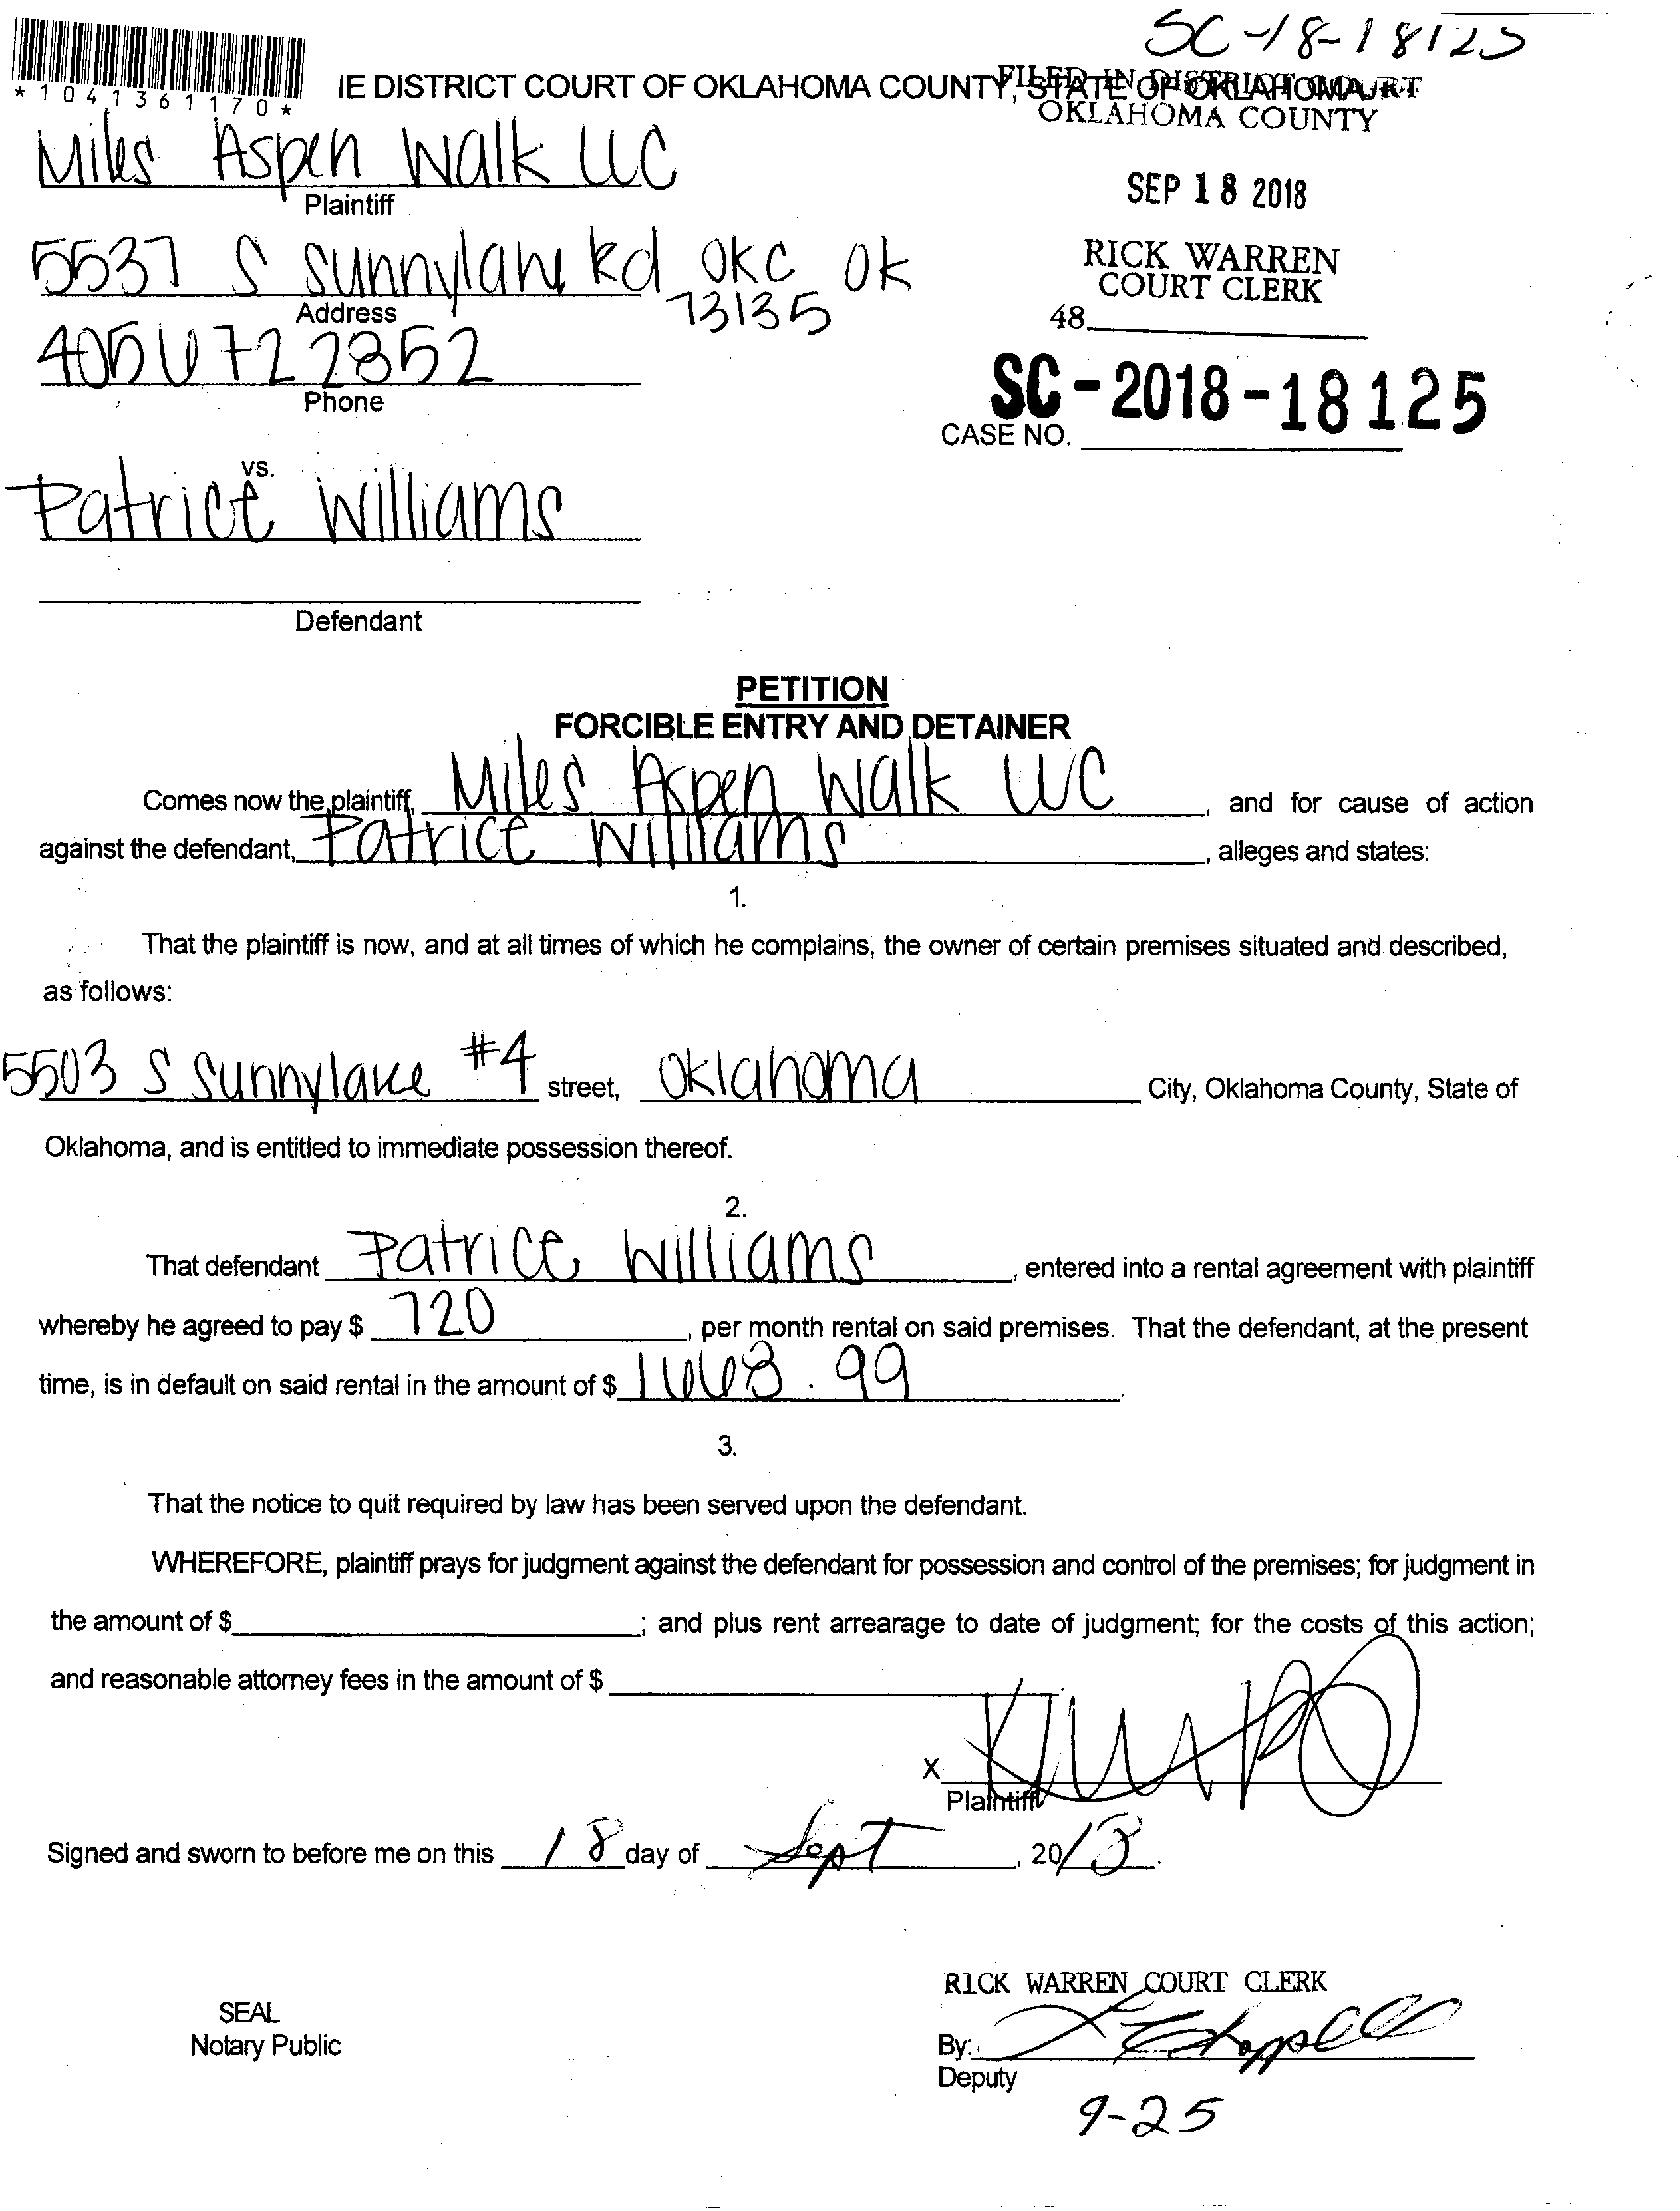 SC-18-18125
*1041361170*
IE DISTRICT COURT OF OKLAHOMA COUNTY, STATE OF OKLAHOMA
FILED IN DISTRICT COURT
OKLAHOMA COUNTY
Miles Aspen Walk LLC
Plaintiff
SEP 18 2018
5537 S Sunnylane Rd OKC OK
73135
Address
RICK WARREN
COURT CLERK
48
405 672 2852
Phone
SC-2018-18125
CASE NO.
vs.
Patrice Williams
Defendant
PETITION
FORCIBLE ENTRY AND DETAINER
Comes now the plaintiff, Miles Aspen Walk LLC, and for cause of action
against the defendant, Patrice Williams, alleges and states:
1.
That the plaintiff is now, and at all times of which he complains, the owner of certain premises situated and described,
as follows:
5503 S Sunnylane #4 street, Oklahoma City, Oklahoma County, State of
Oklahoma, and is entitled to immediate possession thereof.
2.
That defendant Patrice Williams, entered into a rental agreement with plaintiff
whereby he agreed to pay $ 720, per month rental on said premises. That the defendant, at the present
time, is in default on said rental in the amount of $ 1663.99.
3.
That the notice to quit required by law has been served upon the defendant.
WHEREFORE, plaintiff prays for judgment against the defendant for possession and control of the premises; for judgment in
the amount of $; and plus rent arrearage to date of judgment; for the costs of this action;
and reasonable attorney fees in the amount of $
X
Plaintiff
Signed and sworn to before me on this 18 day of Sept, 2018.
RICK WARREN COURT CLERK
SEAL
Notary Public
By: Chappell
Deputy
9-25